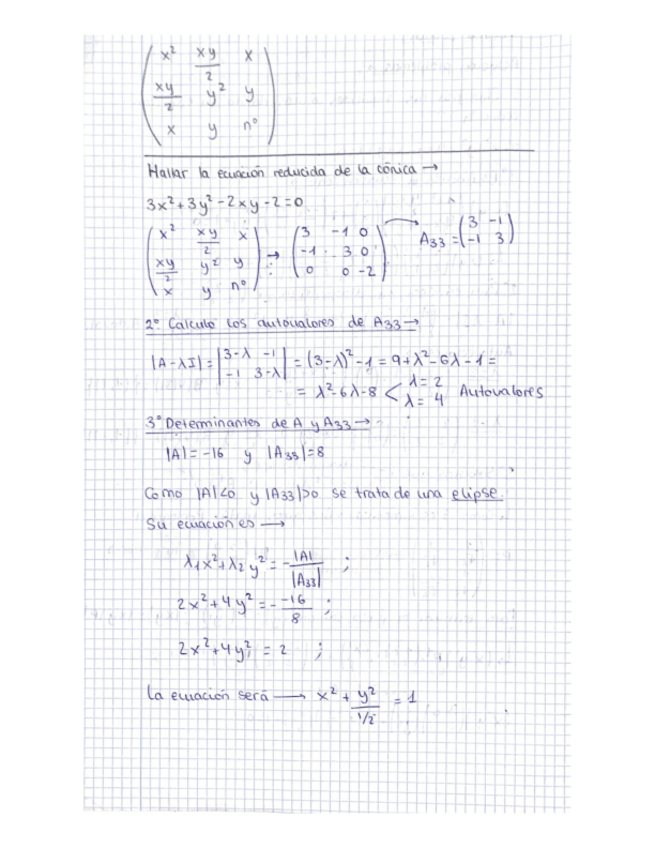 x² xy/2 x
xy/2 y² y
x y nº
Hallar la ecuación reducida de la cónica →
3x²+3y²-2xy-2=0
( x² xy/2 x ; xy/2 y² y ; x y nº ) → ( 3 -1 0 ; -1 3 0 ; 0 0 -2 ) A33 = ( 3 -1 ; -1 3 )
2º Calculo los autovalores de A33 →
|A-λI| = | 3-λ -1 ; -1 3-λ | = (3-λ)²-1 = 9+λ²-6λ-1 =
= λ²-6λ-8 < λ=2 λ=4 Autovalores
3º Determinantes de A y A33 →
|A|=-16 y |A33|=8
Como |A|<0 y |A33|>0 se trata de una elipse.
Su ecuación es →
λ1x²+λ2y² = -|A|/|A33| ;
2x²+4y² = - -16/8 ;
2x²+4y² = 2 ;
La ecuación será → x² + y²/1/2 = 1